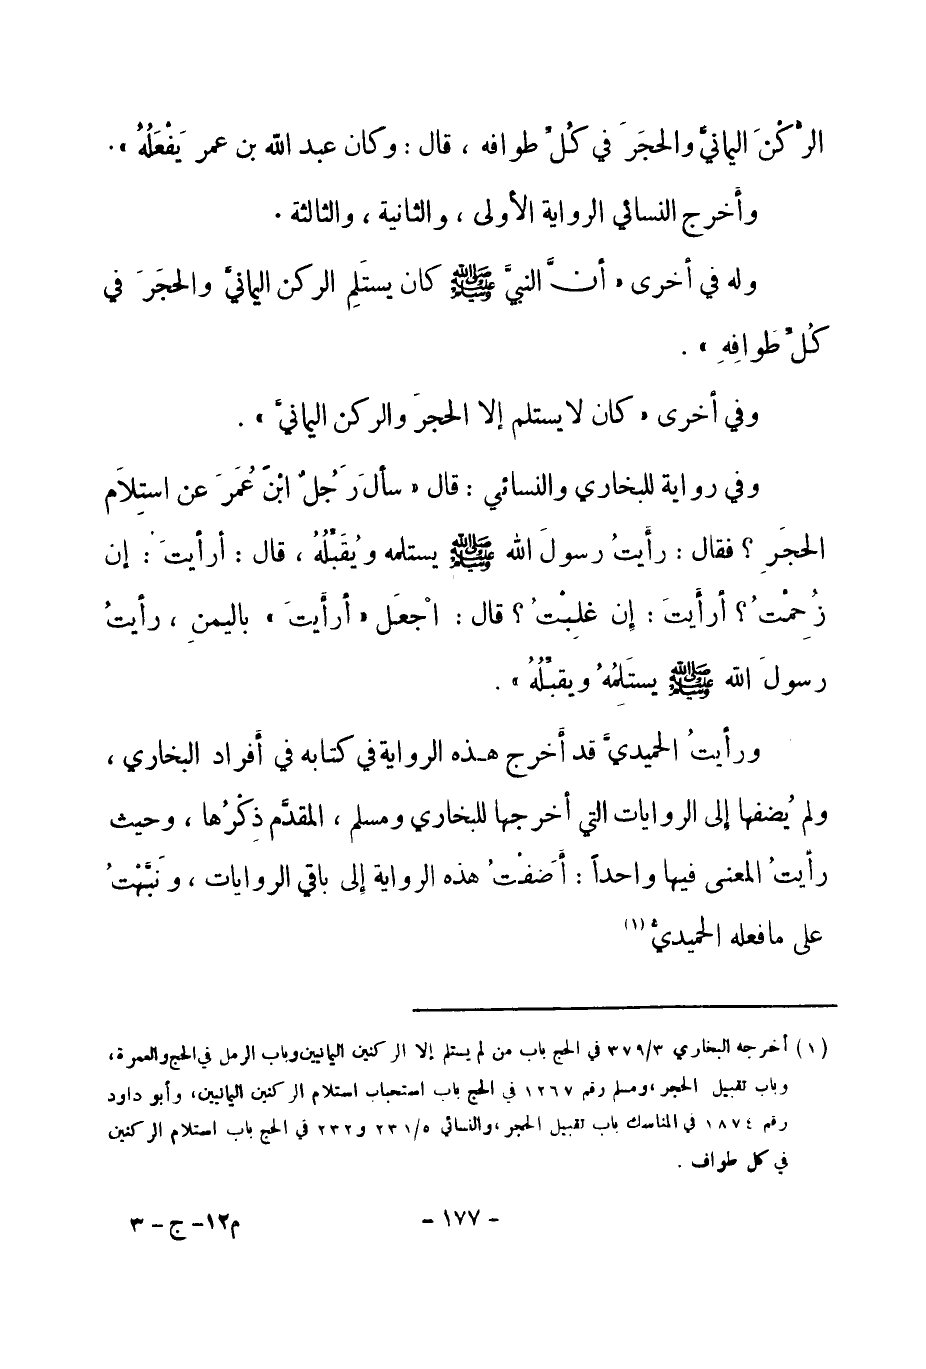 الرُّكْنَ اليمانيَّ والحجَرَ في كُلِّ طوافه ، قال : وكان عبد الله بن عمر يَفْعَلُهُ » .
وأخرج النسائي الرواية الأولى ، والثانية ، والثالثة .
وله في أخرى « أنَّ النبيَّ ﷺ كان يستَلِم الركن اليمانيَّ والحجَرَ في
كُلِّ طَوافِهِ » .
وفي أخرى « كان لا يستلم إلا الحجرَ والركن اليمانيَّ » .
وفي رواية للبخاري والنسائي : قال « سألَ رَجُلٌ ابْنَ عُمَرَ عن استِلَام
الحجَرِ ؟ فقال : رأَيتُ رسولَ الله ﷺ يستلمه ويُقَبِّلُهُ ، قال : أرأيتَ : إن
زُحِمْتُ ؟ أرأَيتَ : إن غلِبْتُ ؟ قال : اجْعَل « أرأَيتَ » باليمنِ ، رأيتُ
رسولَ الله ﷺ يستَلِمُهُ ويقبِّلُهُ » .
ورأيتُ الحميديَّ قد أخرج هـذه الرواية في كتابه في أفراد البخاري ،
ولم يُضفها إلى الروايات التي أخرجها للبخاري ومسلم ، المقدَّم ذِكْرُها ، وحيث
رأيتُ المعنى فيها واحداً : أَضَفْتُ هذه الرواية إلى باقي الروايات ، ونَبَّهْتُ
على ما فعله الحميديُّ (١)
(١) أخرجه البخاري ٣/ ٣٧٩ في الحج باب من لم يستلم إلا الركنين اليمانيين وباب الرمل في الحج والعمرة ،
وباب تقبيل الحجر ، ومسلم رقم ١٢٦٧ في الحج باب استحباب استلام الركنين اليمانيين ، وأبو داود
رقم ١٨٧٤ في المناسك باب تقبيل الحجر ، والنسائي ٥/ ٢٣١ و ٢٣٢ في الحج باب استلام الركنين
في كل طواف .
- ١٧٧ -
م١٢ - ج - ٣